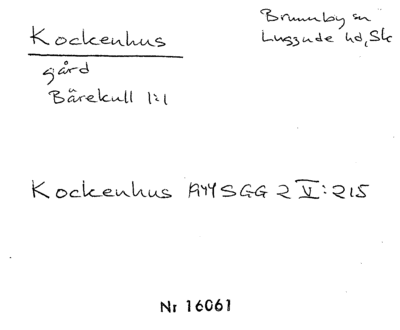 Kockenhus
Brunnby sn
Luggude hd, Sk
gård
Bärekull 1:1
Kockenhus 1944 SGG 2 V:215
Nr 16061